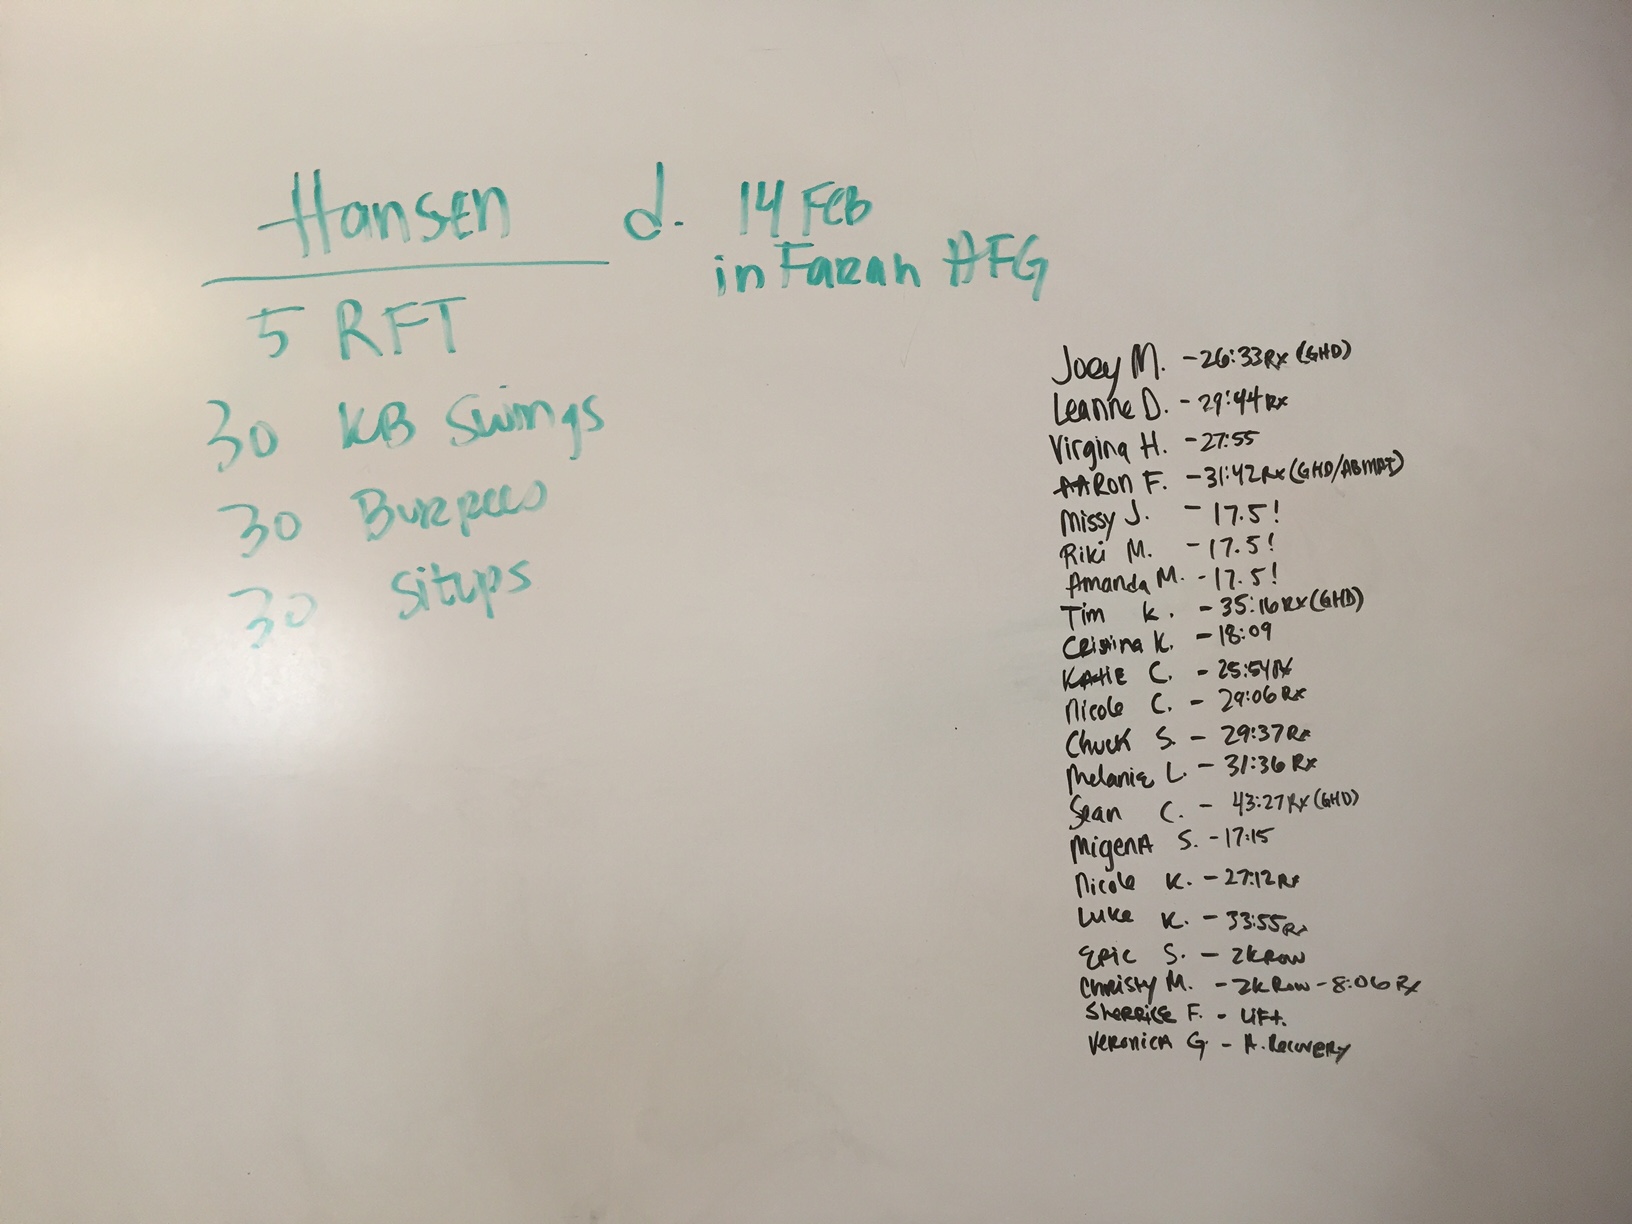 Hansen d. 14 FEB
in Farah AFG
5 RFT
30 KB Swings
30 Burpees
30 Situps
Joey M. - 26:33 Rx (GHD)
Leanne D. - 29:44 Rx
Virgina H. - 27:55
AARON F. - 31:42 Rx (GHD/ABMAT)
Missy J. - 17.5!
Riki M. - 17.5!
Amanda M. - 17.5!
Tim K. - 35:16 Rx (GHD)
Cristina K. - 18:09
KATIE C. - 25:54 Rx
Nicole C. - 29:06 Rx
Chuck S. - 29:37 Rx
Melanie L. - 31:36 Rx
Sean C. - 43:27 Rx (GHD)
MigenA S. - 17:15
Nicole K. - 27:12 Rx
Luke K. - 33:55 Rx
Eric S. - 2K Row
Christy M. - 2K Row - 8:06 Rx
Sherrice F. - Lift.
Veronica G. - A. Recovery